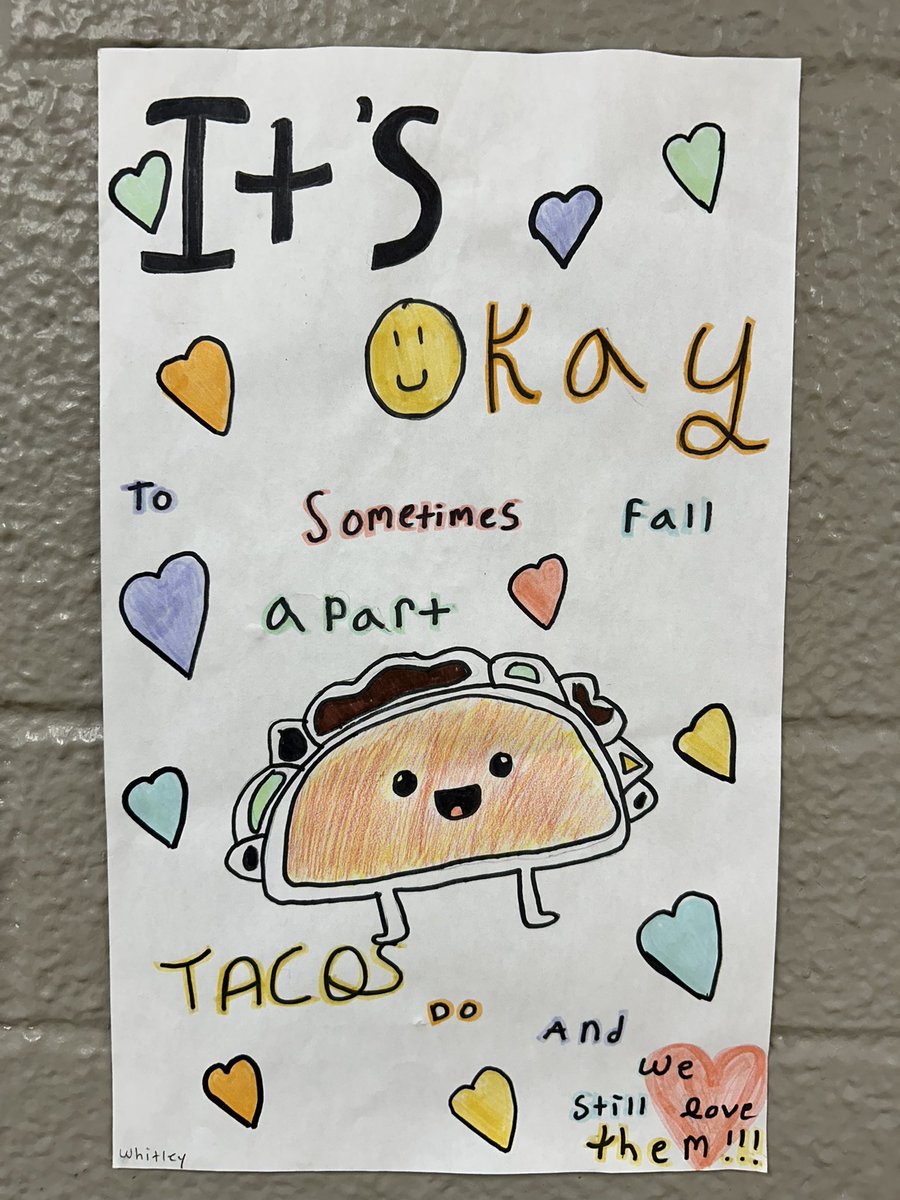 It's
Okay
To Sometimes Fall
apart
TACOS
DO
And
We
Still love
them!!!
Whitley